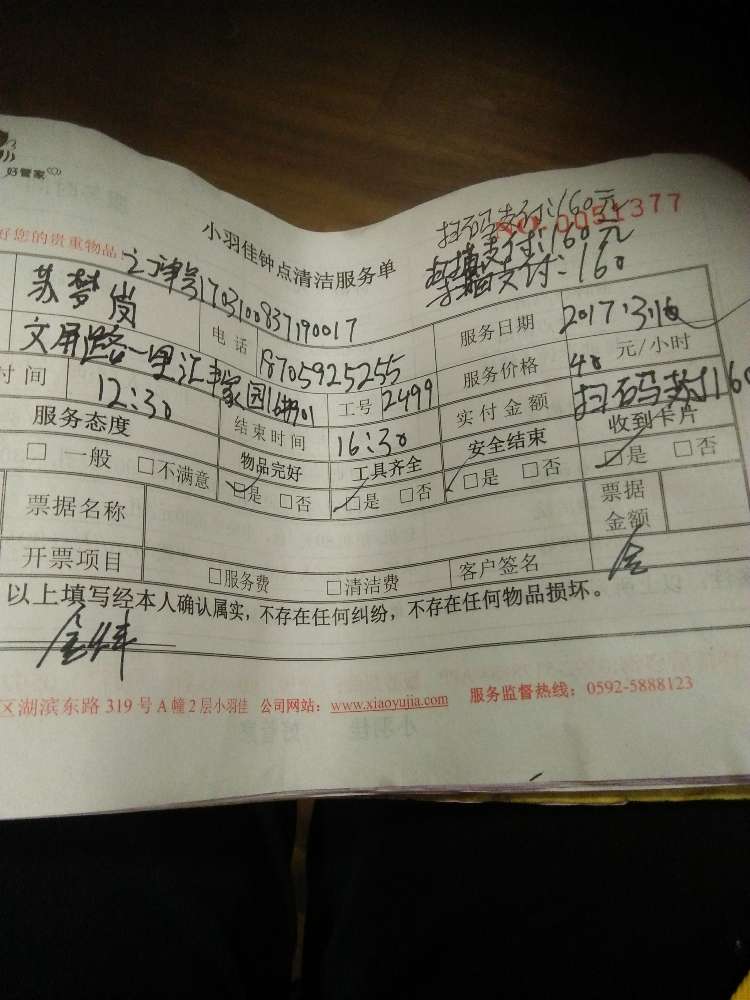 好管家
扫码支付:160元
NO.0051377
支付:160元
支付:160
好您的贵重物品!
小羽佳钟点清洁服务单
订单号170310083719 0017
苏梦岚 电话 18705925255 服务日期 2017.3.16
文屏路一里汇丰家园 工号 2499 服务价格 40 元/小时
时间 12:30 结束时间 16:30 实付金额 扫码支付160
服务态度 物品完好 工具齐全 安全结束 收到卡片
□ 一般 □不满意 □是 □否 □是 □否 □是 □否 □是 □否
票据名称 票据金额
开票项目 □服务费 □清洁费 客户签名
以上填写经本人确认属实，不存在任何纠纷，不存在任何物品损坏。
区湖滨东路 319 号 A 幢 2 层小羽佳 公司网站：www.xiaoyujia.com 服务监督热线：0592-5888123